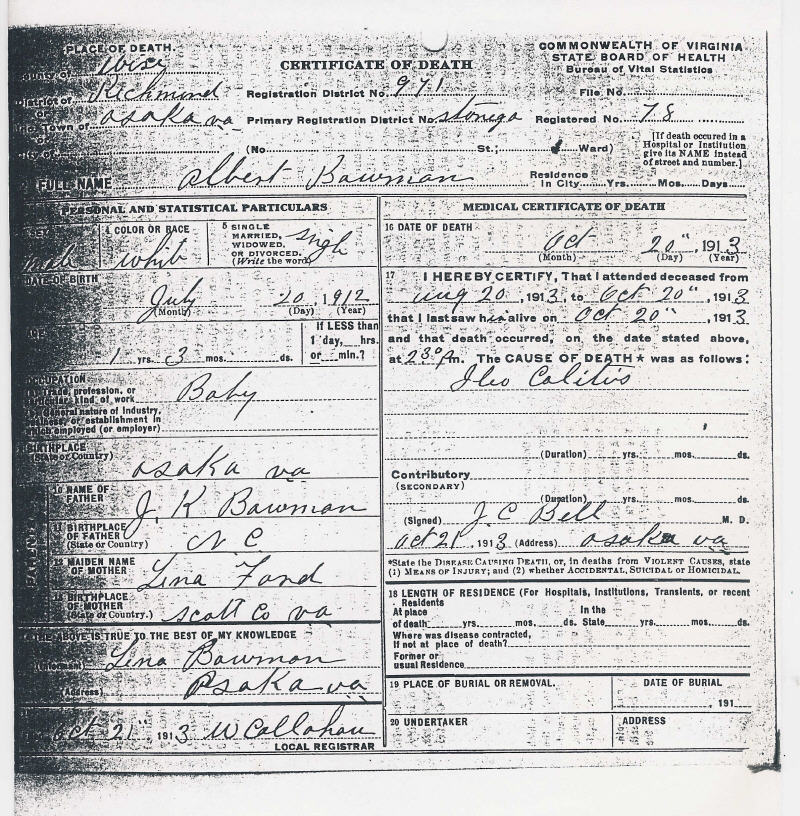 PLACE OF DEATH.
County of Wise
District of Richmond
or
the Town of Osaka va
or
City of
CERTIFICATE OF DEATH
Registration District No. 971
Primary Registration District No. Stonga
(No St.; Ward)
COMMONWEALTH OF VIRGINIA
STATE BOARD OF HEALTH
Bureau of Vital Statistics
File No.
Registered No. 78
[If death occured in a
Hospital or Institution
give its NAME instead
of street and number.]
FULL NAME Albert Bowman
Residence
In City Yrs. Mos. Days
PERSONAL AND STATISTICAL PARTICULARS
4 COLOR OR RACE
whit
5 SINGLE
MARRIED,
WIDOWED,
OR DIVORCED.
(Write the word)
Singl
DATE OF BIRTH
July 20, 1912
(Month) (Day) (Year)
AGE
1 yrs. 3 mos. ds.
If LESS than
1 day, hrs.
or min.?
OCCUPATION
(a) Trade, profession, or
particular kind of work Baby
(b) General nature of Industry,
business, or establishment in
which employed (or employer)
BIRTHPLACE
(State or Country)
Osaka va
10 NAME OF
FATHER
J. K Bowman
11 BIRTHPLACE
OF FATHER
(State or Country)
N C
12 MAIDEN NAME
OF MOTHER
Lena Fond
13 BIRTHPLACE
OF MOTHER
(State or Country.)
Scott Co va
THE ABOVE IS TRUE TO THE BEST OF MY KNOWLEDGE
(Informant) Lena Bowman
(Address) Osaka va
Oct 21", 1913 W Callahan
LOCAL REGISTRAR
MEDICAL CERTIFICATE OF DEATH
16 DATE OF DEATH
Oct 20", 1913
(Month) (Day) (Year)
17 I HEREBY CERTIFY, That I attended deceased from
Aug 20, 1913, to Oct 20", 1913
that I last saw him alive on Oct 20", 1913
and that death occurred, on the date stated above,
at 2 30 A m. The CAUSE OF DEATH * was as follows:
Ileo Colitis
(Duration) yrs. mos. ds.
Contributory
(SECONDARY)
(Duration) yrs. mos. ds.
(Signed) J. C Bell M. D.
Oct 21, 1913 (Address) Osaka va
*State the DISEASE CAUSING DEATH, or, in deaths from VIOLENT CAUSES, state
(1) MEANS OF INJURY; and (2) whether ACCIDENTAL, SUICIDAL or HOMICIDAL.
18 LENGTH OF RESIDENCE (For Hospitals, Institutions, Transients, or recent
Residents
At place In the
of death yrs. mos. ds. State yrs. mos. ds.
Where was disease contracted,
If not at place of death?
Former or
usual Residence
19 PLACE OF BURIAL OR REMOVAL.
DATE OF BURIAL
, 191
20 UNDERTAKER
ADDRESS